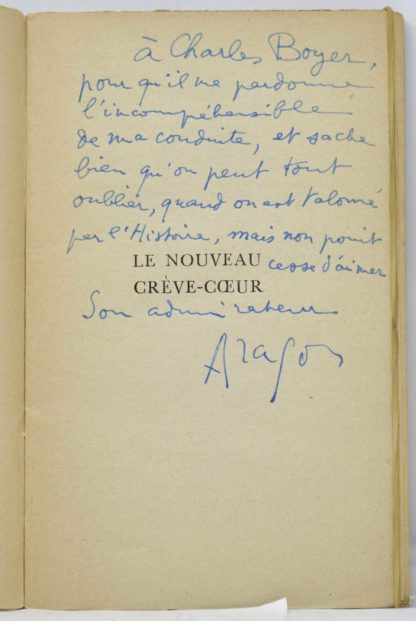 à Charles Boyer,
pour qu'il me pardonne
l'incompéhensible
de ma conduite, et sache
bien qu'on peut tout
oublier, quand on est talonné
par l'Histoire, mais non point
cesse d'aimer
LE NOUVEAU
CRÈVE-CŒUR
Son admirateur
Aragon